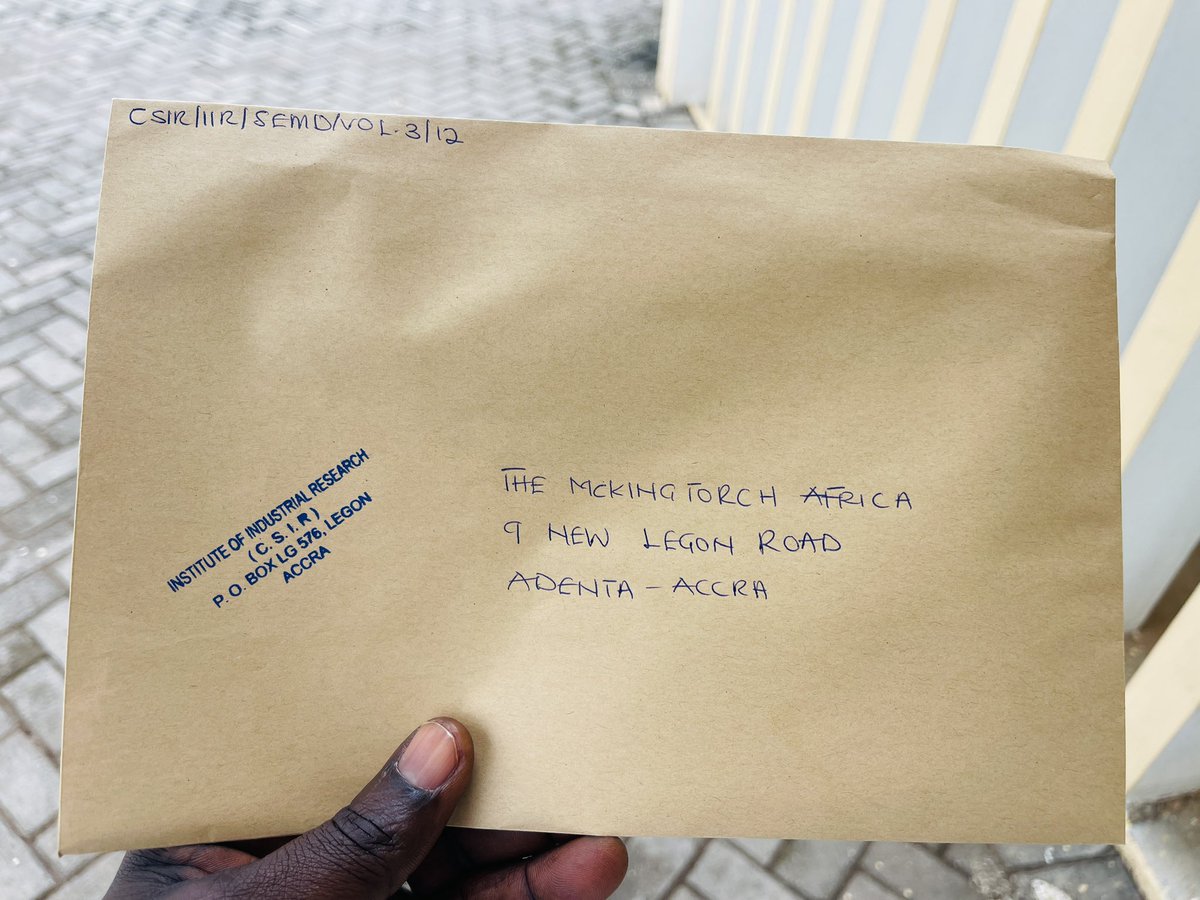 CSIR/IIR/SEMD/VOL.3/12
INSTITUTE OF INDUSTRIAL RESEARCH
(C. S. I. R)
P. O. BOX LG 576, LEGON
ACCRA
THE MCKINGTORCH AFRICA
9 NEW LEGON ROAD
ADENTA - ACCRA